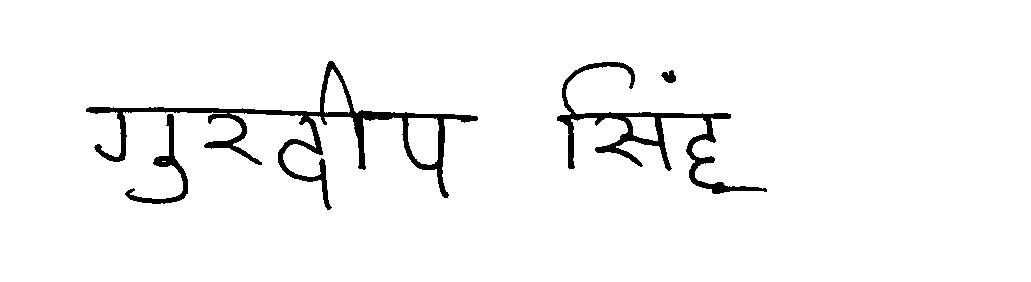 गुरदीप सिंह